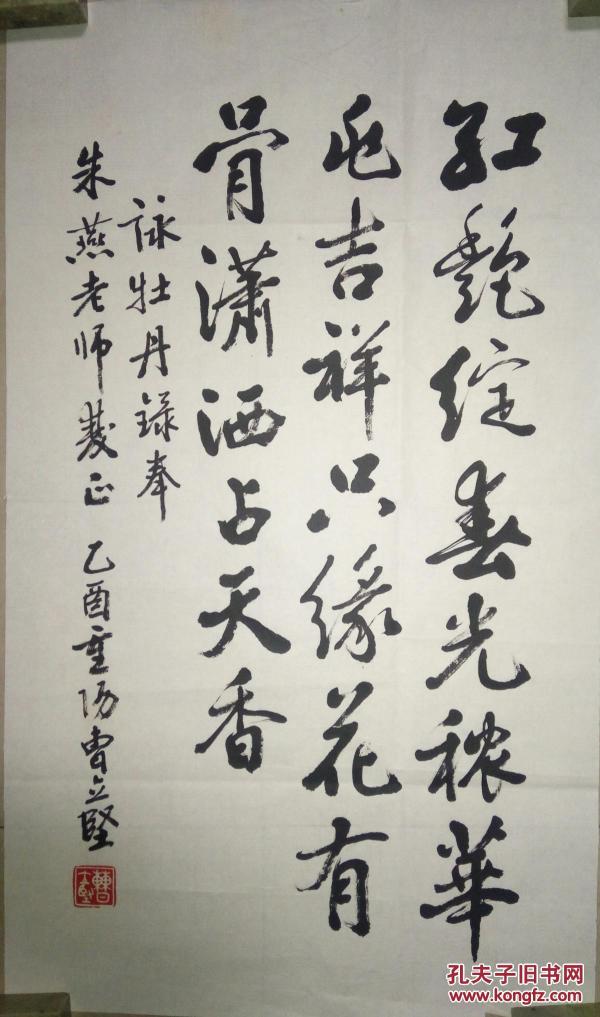 红艳绽春光秾華
兆吉祥只缘花有
骨潇洒占天香
詠牡丹録奉
朱燕老师教正 乙酉重阳曹立堅
孔夫子旧书网
www.kongfz.com